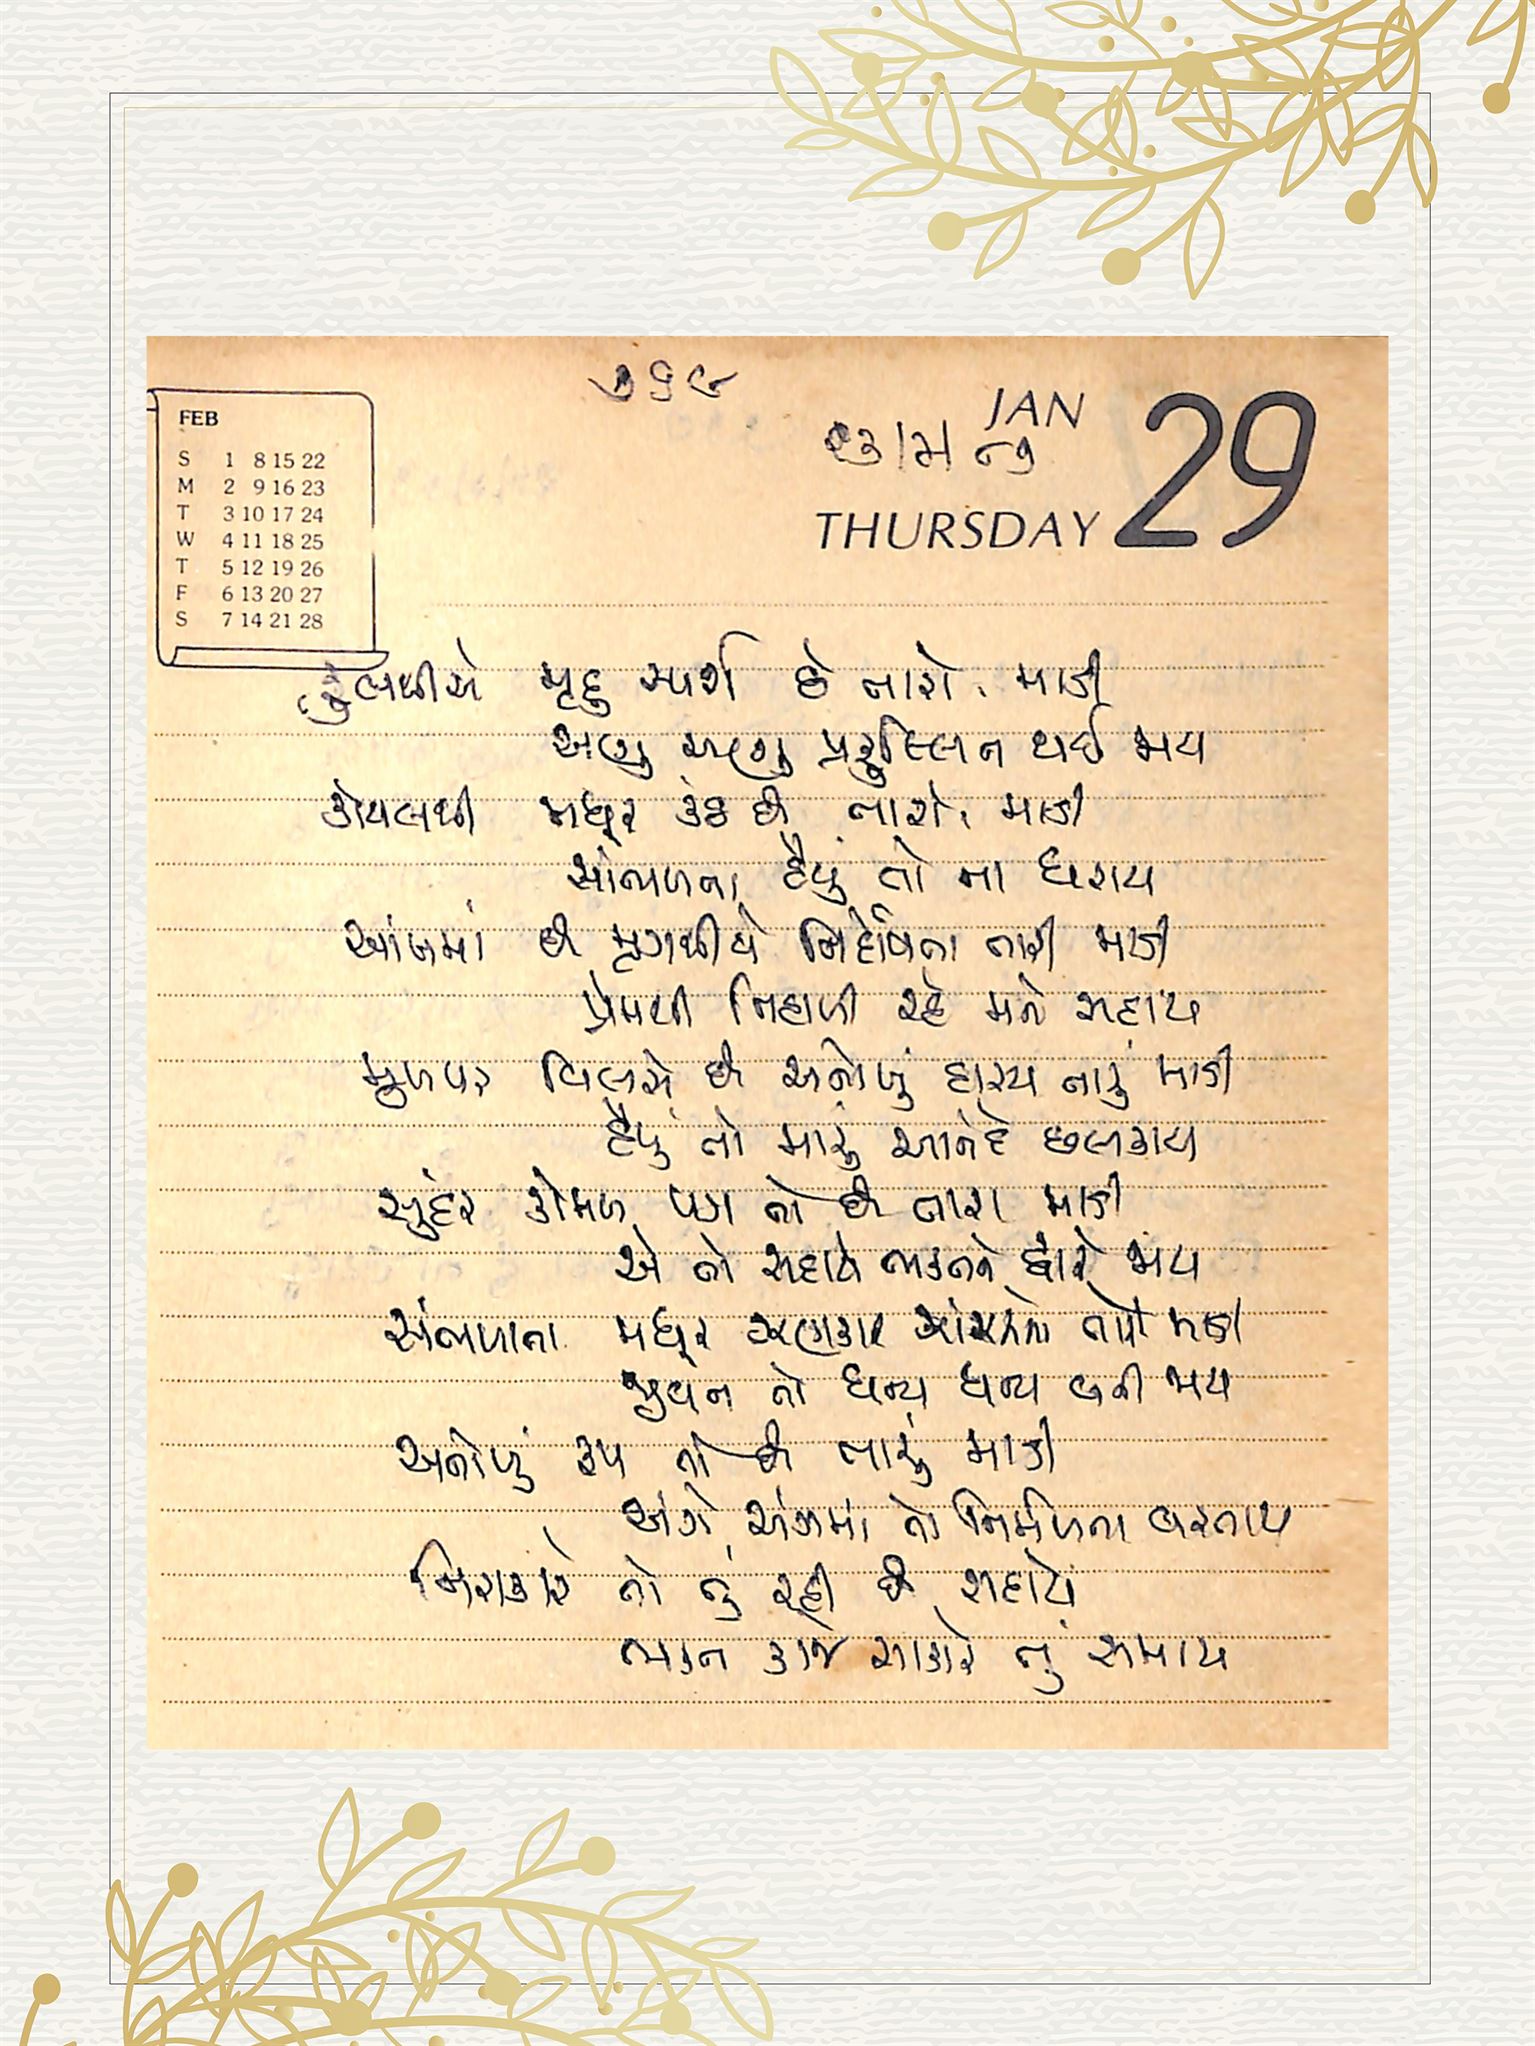 ૭૧૯
JAN 29
THURSDAY
FEB
S 1 8 15 22
M 2 9 16 23
T 3 10 17 24
W 4 11 18 25
T 5 12 19 26
F 6 13 20 27
S 7 14 21 28
ફૂલથીએ મૃદુ સ્પર્શ છે તારો, માડી
અણુ અણુ પ્રફુલ્લિત થઈ જાય
કોયલથી મધુર કંઠ છે તારો, માડી
સાંભળતા હૈયું તો ના ધરાય
આંખમાં છે મૃગથીયે નિર્દોષતા તારી માડી
પ્રેમથી નિહાળી રહે મને સદાય
મુખપર વિલસે છે અનોખું હાસ્ય તારું માડી
હૈયું તો મારું આનંદે છલકાય
સુંદર કોમળ પગ તો છે તારા માડી
એ તો સદાયે ભક્તને દ્વારે જાય
સાંભળતા મધુર રણકાર ઝાંઝરનો તારો માડી
જીવન તો ધન્ય ધન્ય બની જાય
અનોખું રૂપ તો છે તારું માડી
અંગે અંગમાં તો નિર્મળતા વરતાય
નિરાકારે તો તું રહી છે સદાયે
ભક્ત કાજે સાકારે તું સમાય